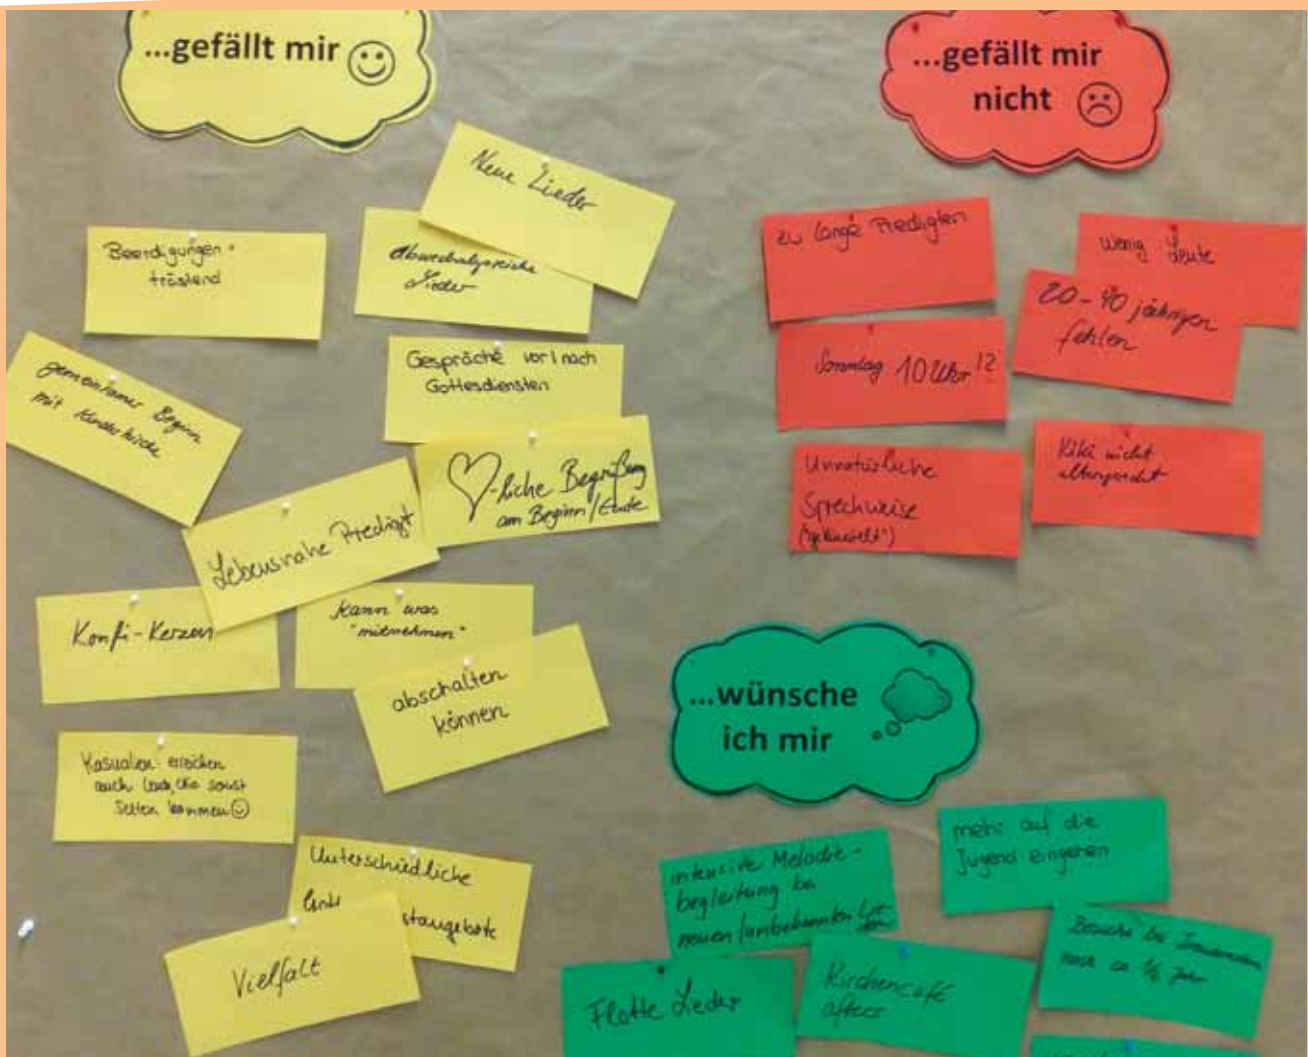 ...gefällt mir
Neue Lieder
Beerdigungen
tröstend
abwechslgsreiche
Lieder
Gespräche vor/nach
Gottesdiensten
gemeinsamer Beginn
mit Kinderkirche
-liche Begrüßung
am Beginn/Ende
Lebensnahe Predigt
Konfi-Kerzen
kann was
"mitnehmen"
abschalten
können
Kasualien erreichen
auch Leute, die sonst
selten kommen
Unterschiedliche
Vielfalt
...gefällt mir
nicht
zu lange Predigten
wenig Leute
20-40 jährigen
fehlen
Sonntag 10 Uhr !?
Unnatürliche
Sprechweise
("gekünstelt")
Kiki nicht
altersgerecht
...wünsche
ich mir
mehr auf die
Jugend eingehen
intensive Melodie-
begleitung bei
neuen/unbekannten
Besuche bei
nach ca. 1/2 Jahr
Flotte Lieder
Kirchencafé
öfters